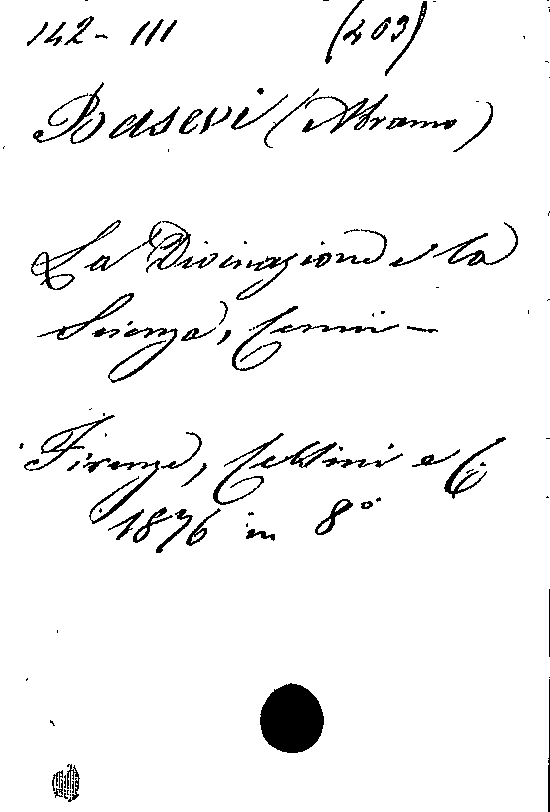 142 - III (203)
Basevi (Abramo)
La Divinazione e la
Scienza, Cenni -
Firenze, Cellini e C.
1876 in 8°